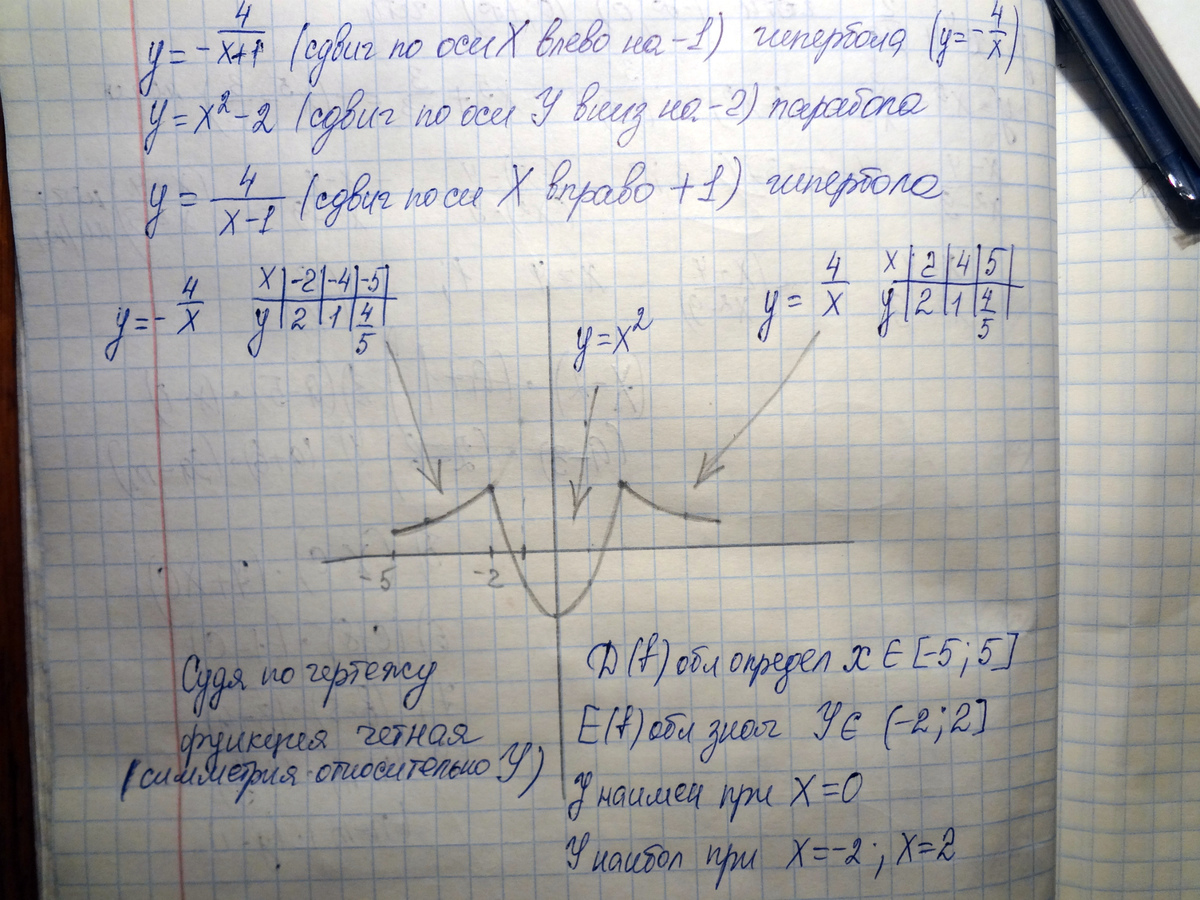 y = - 4/(x+1) (сдвиг по оси X влево на -1) гипербола (y = - 4/x)
y = x² - 2 (сдвиг по оси У вниз на -2) парабола
y = 4/(x-1) (сдвиг по оси X вправо +1) гипербола
y = - 4/x
x | -2 | -4 | -5
y | 2 | 1 | 4/5
y = x²
y = 4/x
x | 2 | 4 | 5
y | 2 | 1 | 4/5
-5 -2
Судя по чертежу
функция четная
(симметрия относительно У)
D(f) обл определ x ∈ [-5; 5]
E(f) обл знач У ∈ (-2; 2]
У наимен при X = 0
У наибол при X = -2; X = 2